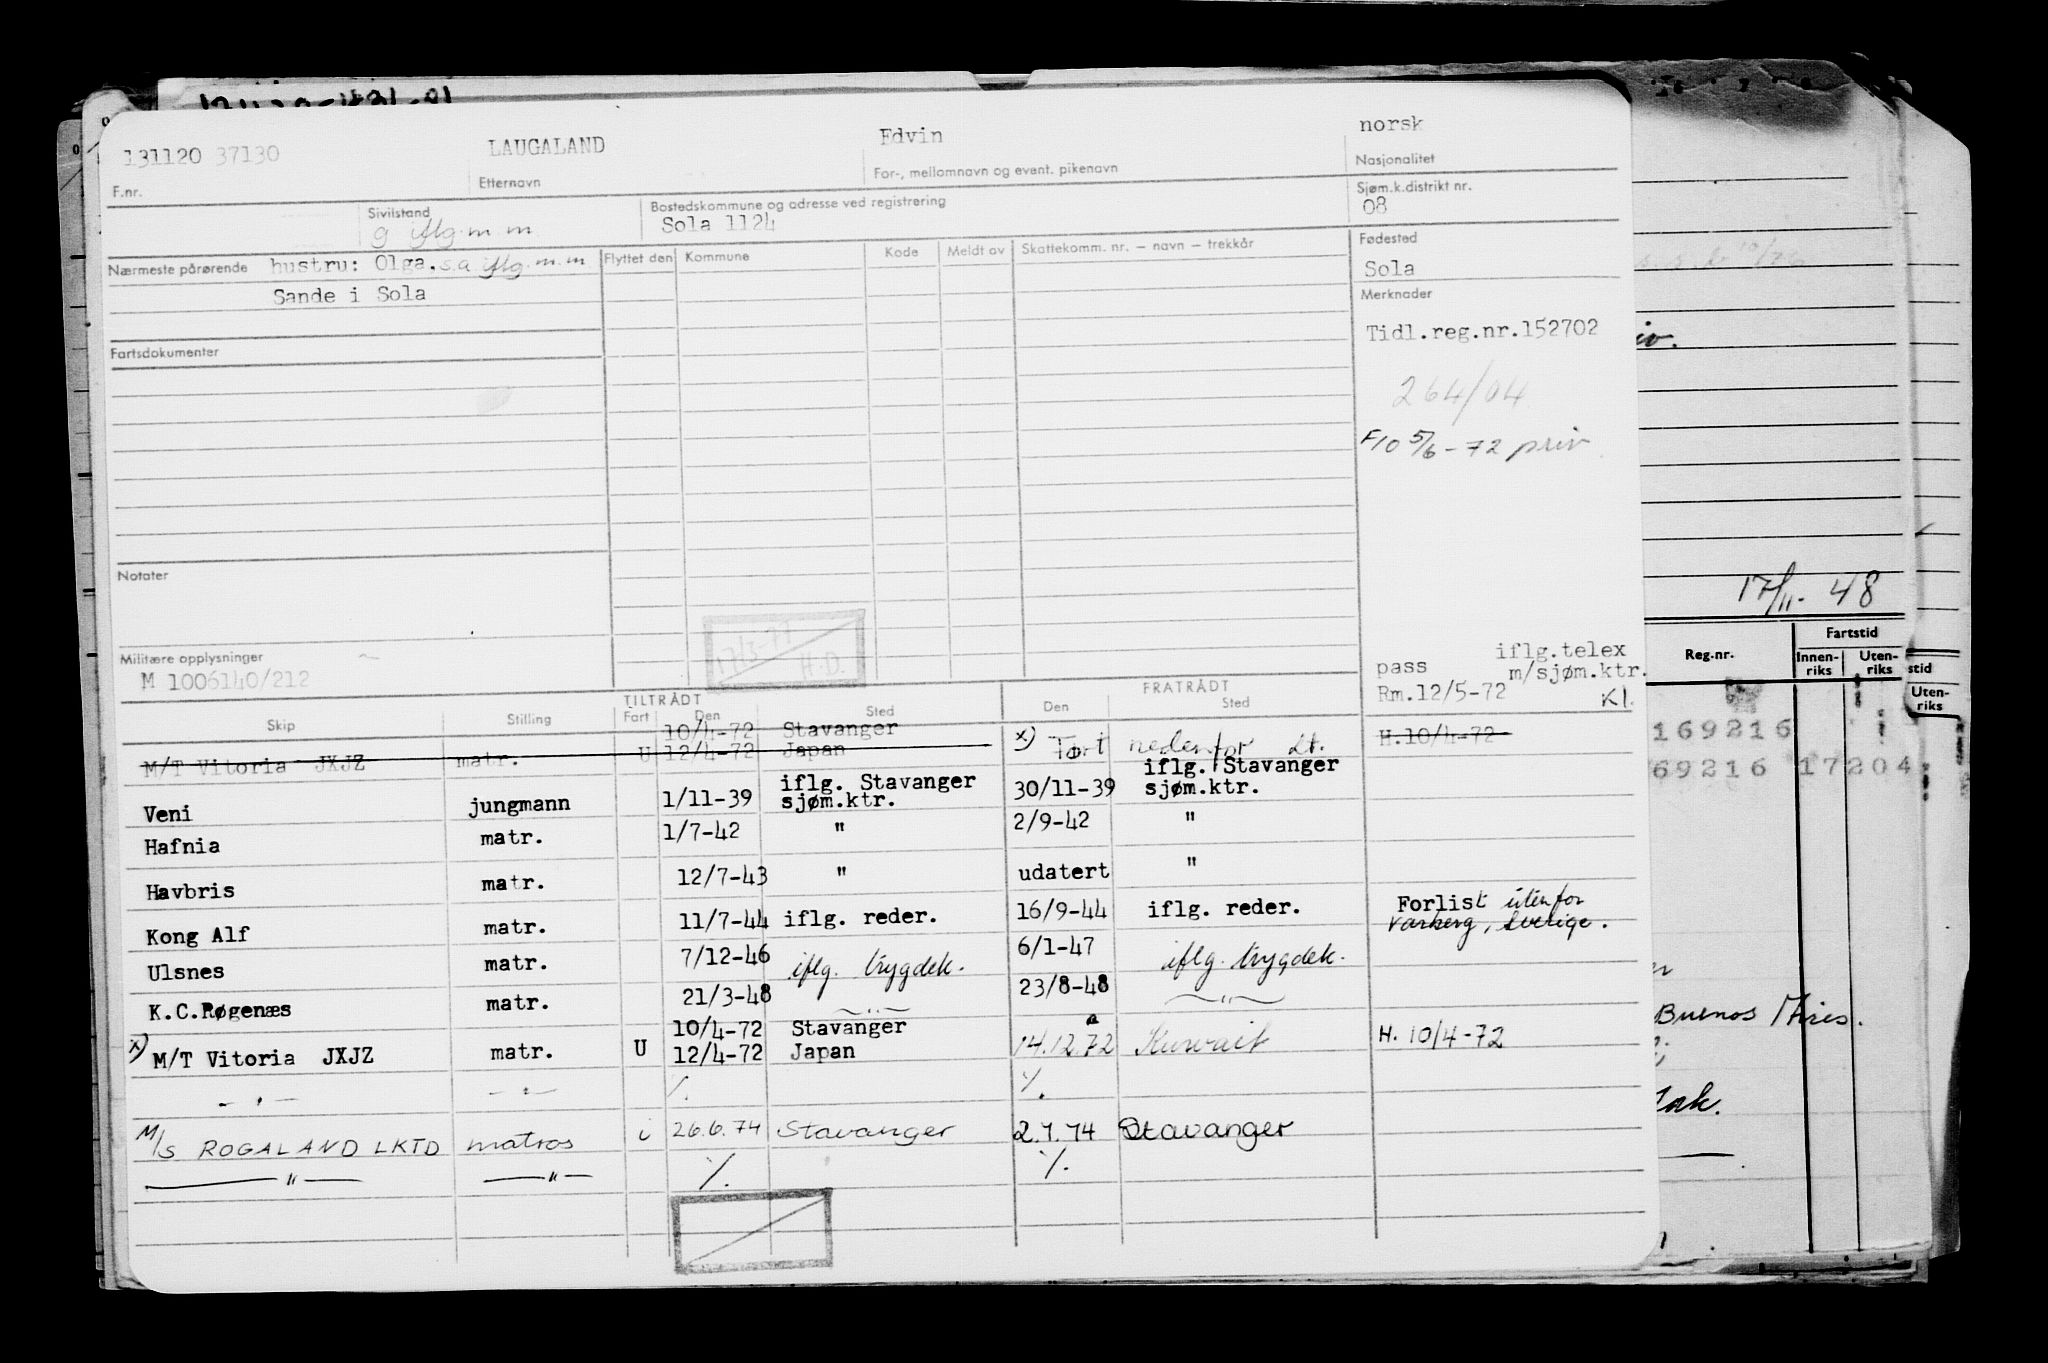 131120 37130 LAUGALAND Edvin norsk
F.nr. Etternavn For-, mellomnavn og event. pikenavn Nasjonalitet
Sivilstand Bostedskommune og adresse ved registrering Sjøm.k.distrikt nr.
g iflg. m m Sola 1124 08
Nærmeste pårørende hustru: Olga, s.a. iflg. m.m. Flyttet den Kommune Kode Meldt av Skattekomm. nr. – navn – trekkår Fødested
Sande i Sola Sola
Merknader
Fartsdokumenter Tidl.reg.nr.152702
264/04
F10 5/6-72 priv
Notater
17/11-48
17/3-77
H.D.
Militære opplysninger
M 1006140/212
pass iflg.telex
Rm.12/5-72 m/sjøm.ktr.
Kl.
TILTRÅDT FRATRÅDT
Skip Stilling Fart Den Sted Den Sted
10/4-72 Stavanger
M/T Vitoria JXJZ matr. U 12/4-72 Japan x) Ført nedenfor Lt. H.10/4-72
Veni jungmann 1/11-39 iflg. Stavanger sjøm.ktr. 30/11-39 iflg. Stavanger sjøm.ktr.
Hafnia matr. 1/7-42 " 2/9-42 "
Havbris matr. 12/7-43 " udatert "
Kong Alf matr. 11/7-44 iflg. reder. 16/9-44 iflg. reder. Forlist utenfor Varberg, Sverige.
Ulsnes matr. 7/12-46 iflg. trygdek. 6/1-47 iflg. trygdek.
K.C.Røgenæs matr. 21/3-48 — " — 23/8-48 — " —
10/4-72 Stavanger
x) M/T Vitoria JXJZ matr. U 12/4-72 Japan 14.12.72 Kuwait H. 10/4-72
— " — — " — ./. ./.
M/S ROGALAND LKTD matros i 26.6.74 Stavanger 2.7.74 Stavanger
— " — — " — ./. ./.
Reg.nr. Fartstid
Innen-riks Uten-riks
stid
Uten-riks
169216
69216 17204
Buenos Aires.